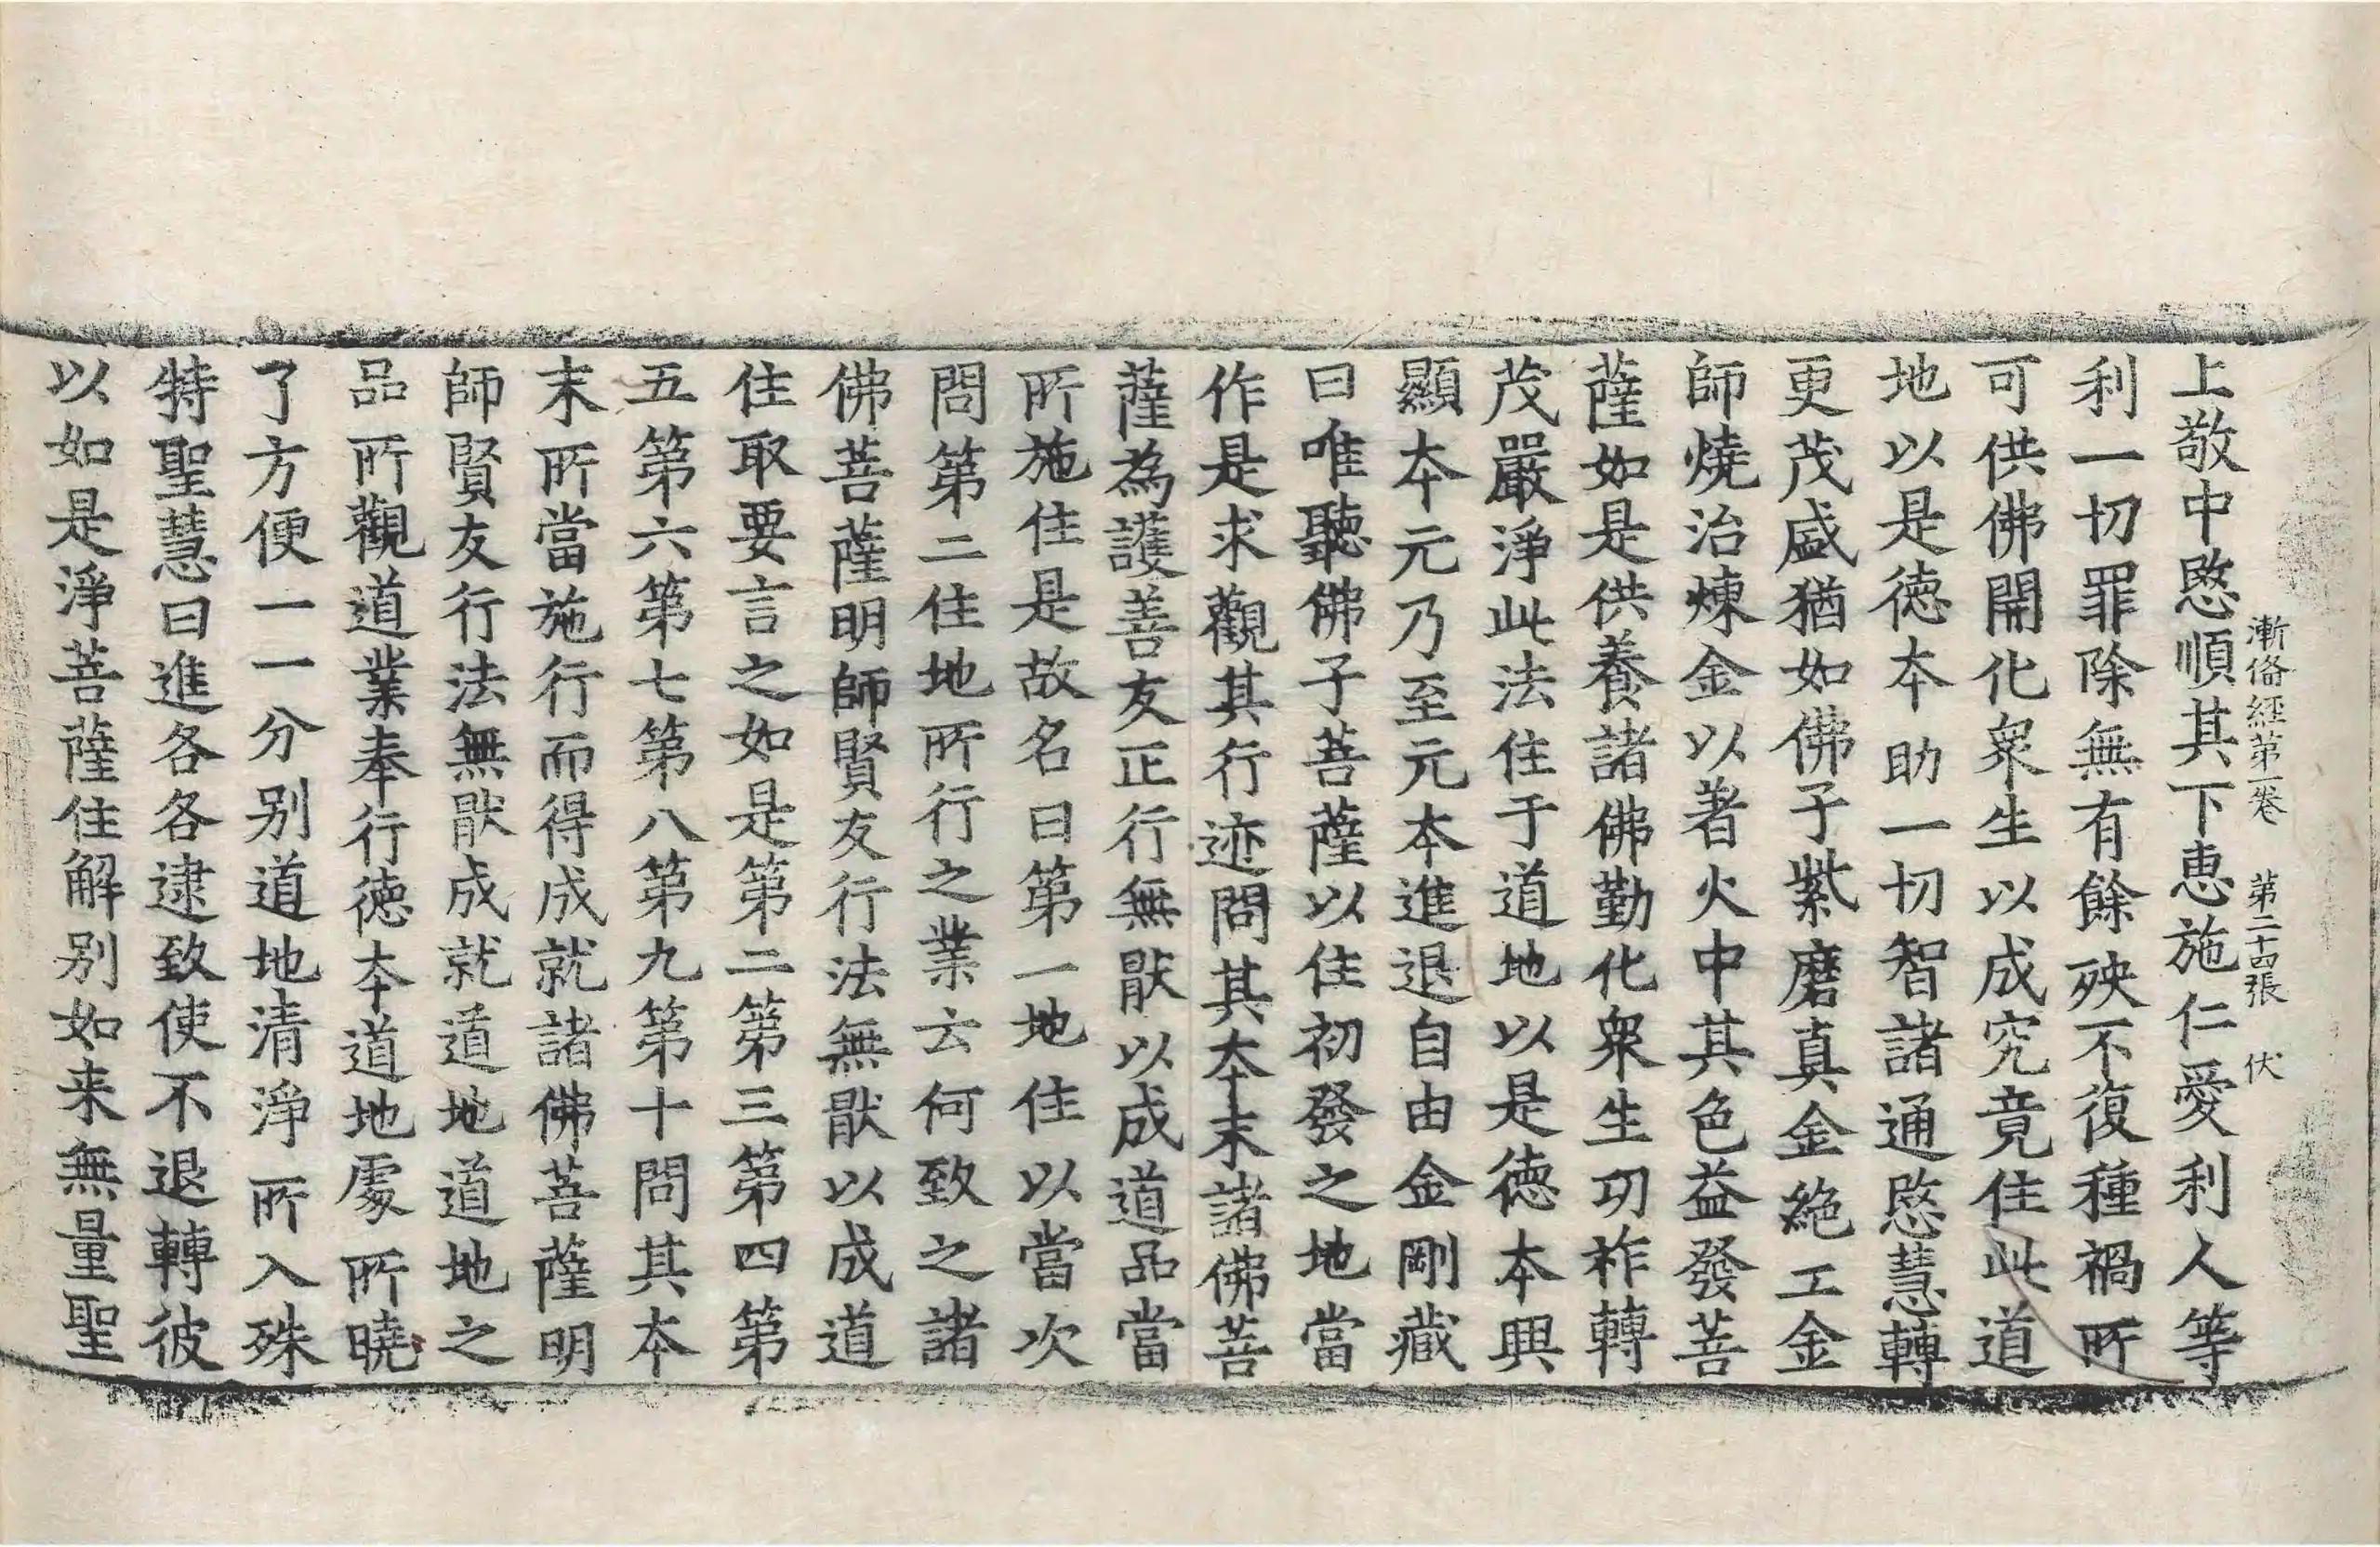 漸俻經第一卷 第二十四張 伏
上敬中愍順其下恵施仁愛利人等
利一切罪除無有餘殃不復種禍所
可供佛開化衆生以成究竟住此道
地以是德本助一切智諸通愍慧轉
更茂盛猶如佛子紫磨真金絶工金
師燒治煉金以著火中其色益發菩
薩如是供養諸佛勤化衆生功祚轉
茂嚴淨此法住于道地以是德本興
顯本元乃至元本進退自由金剛藏
曰唯聽佛子菩薩以住初發之地當
作是求觀其行迹問其本末諸佛菩
薩為護善友正行無猒以成道品當
所施住是故名曰第一地住以當次
問第二住地所行之業云何致之諸
佛菩薩明師賢友行法無猒以成道
住取要言之如是第二第三第四第
五第六第七第八第九第十問其本
末所當施行而得成就諸佛菩薩明
師賢友行法無猒成就道地道地之
品所觀道業奉行德本道地處所曉
了方便一一分别道地清淨所入殊
特聖慧曰進各各逮致使不退轉彼
以如是淨菩薩住解别如来無量聖